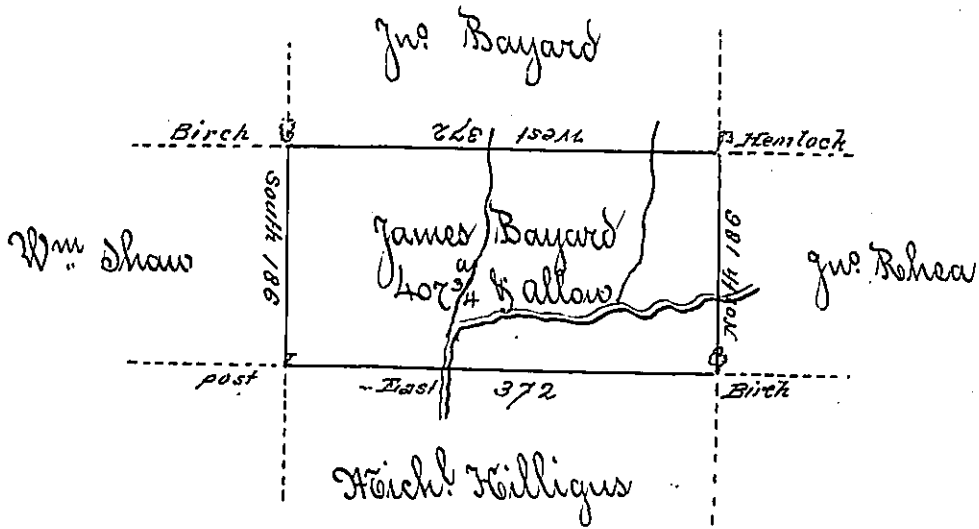 Jnº Bayard
Birch
West 372
Hemlock
South 186
James Bayard
a
407¾ & allow
North 186
Wm Shaw
Jnº Rhea
post
East 372
Birch
Michl Hilligus